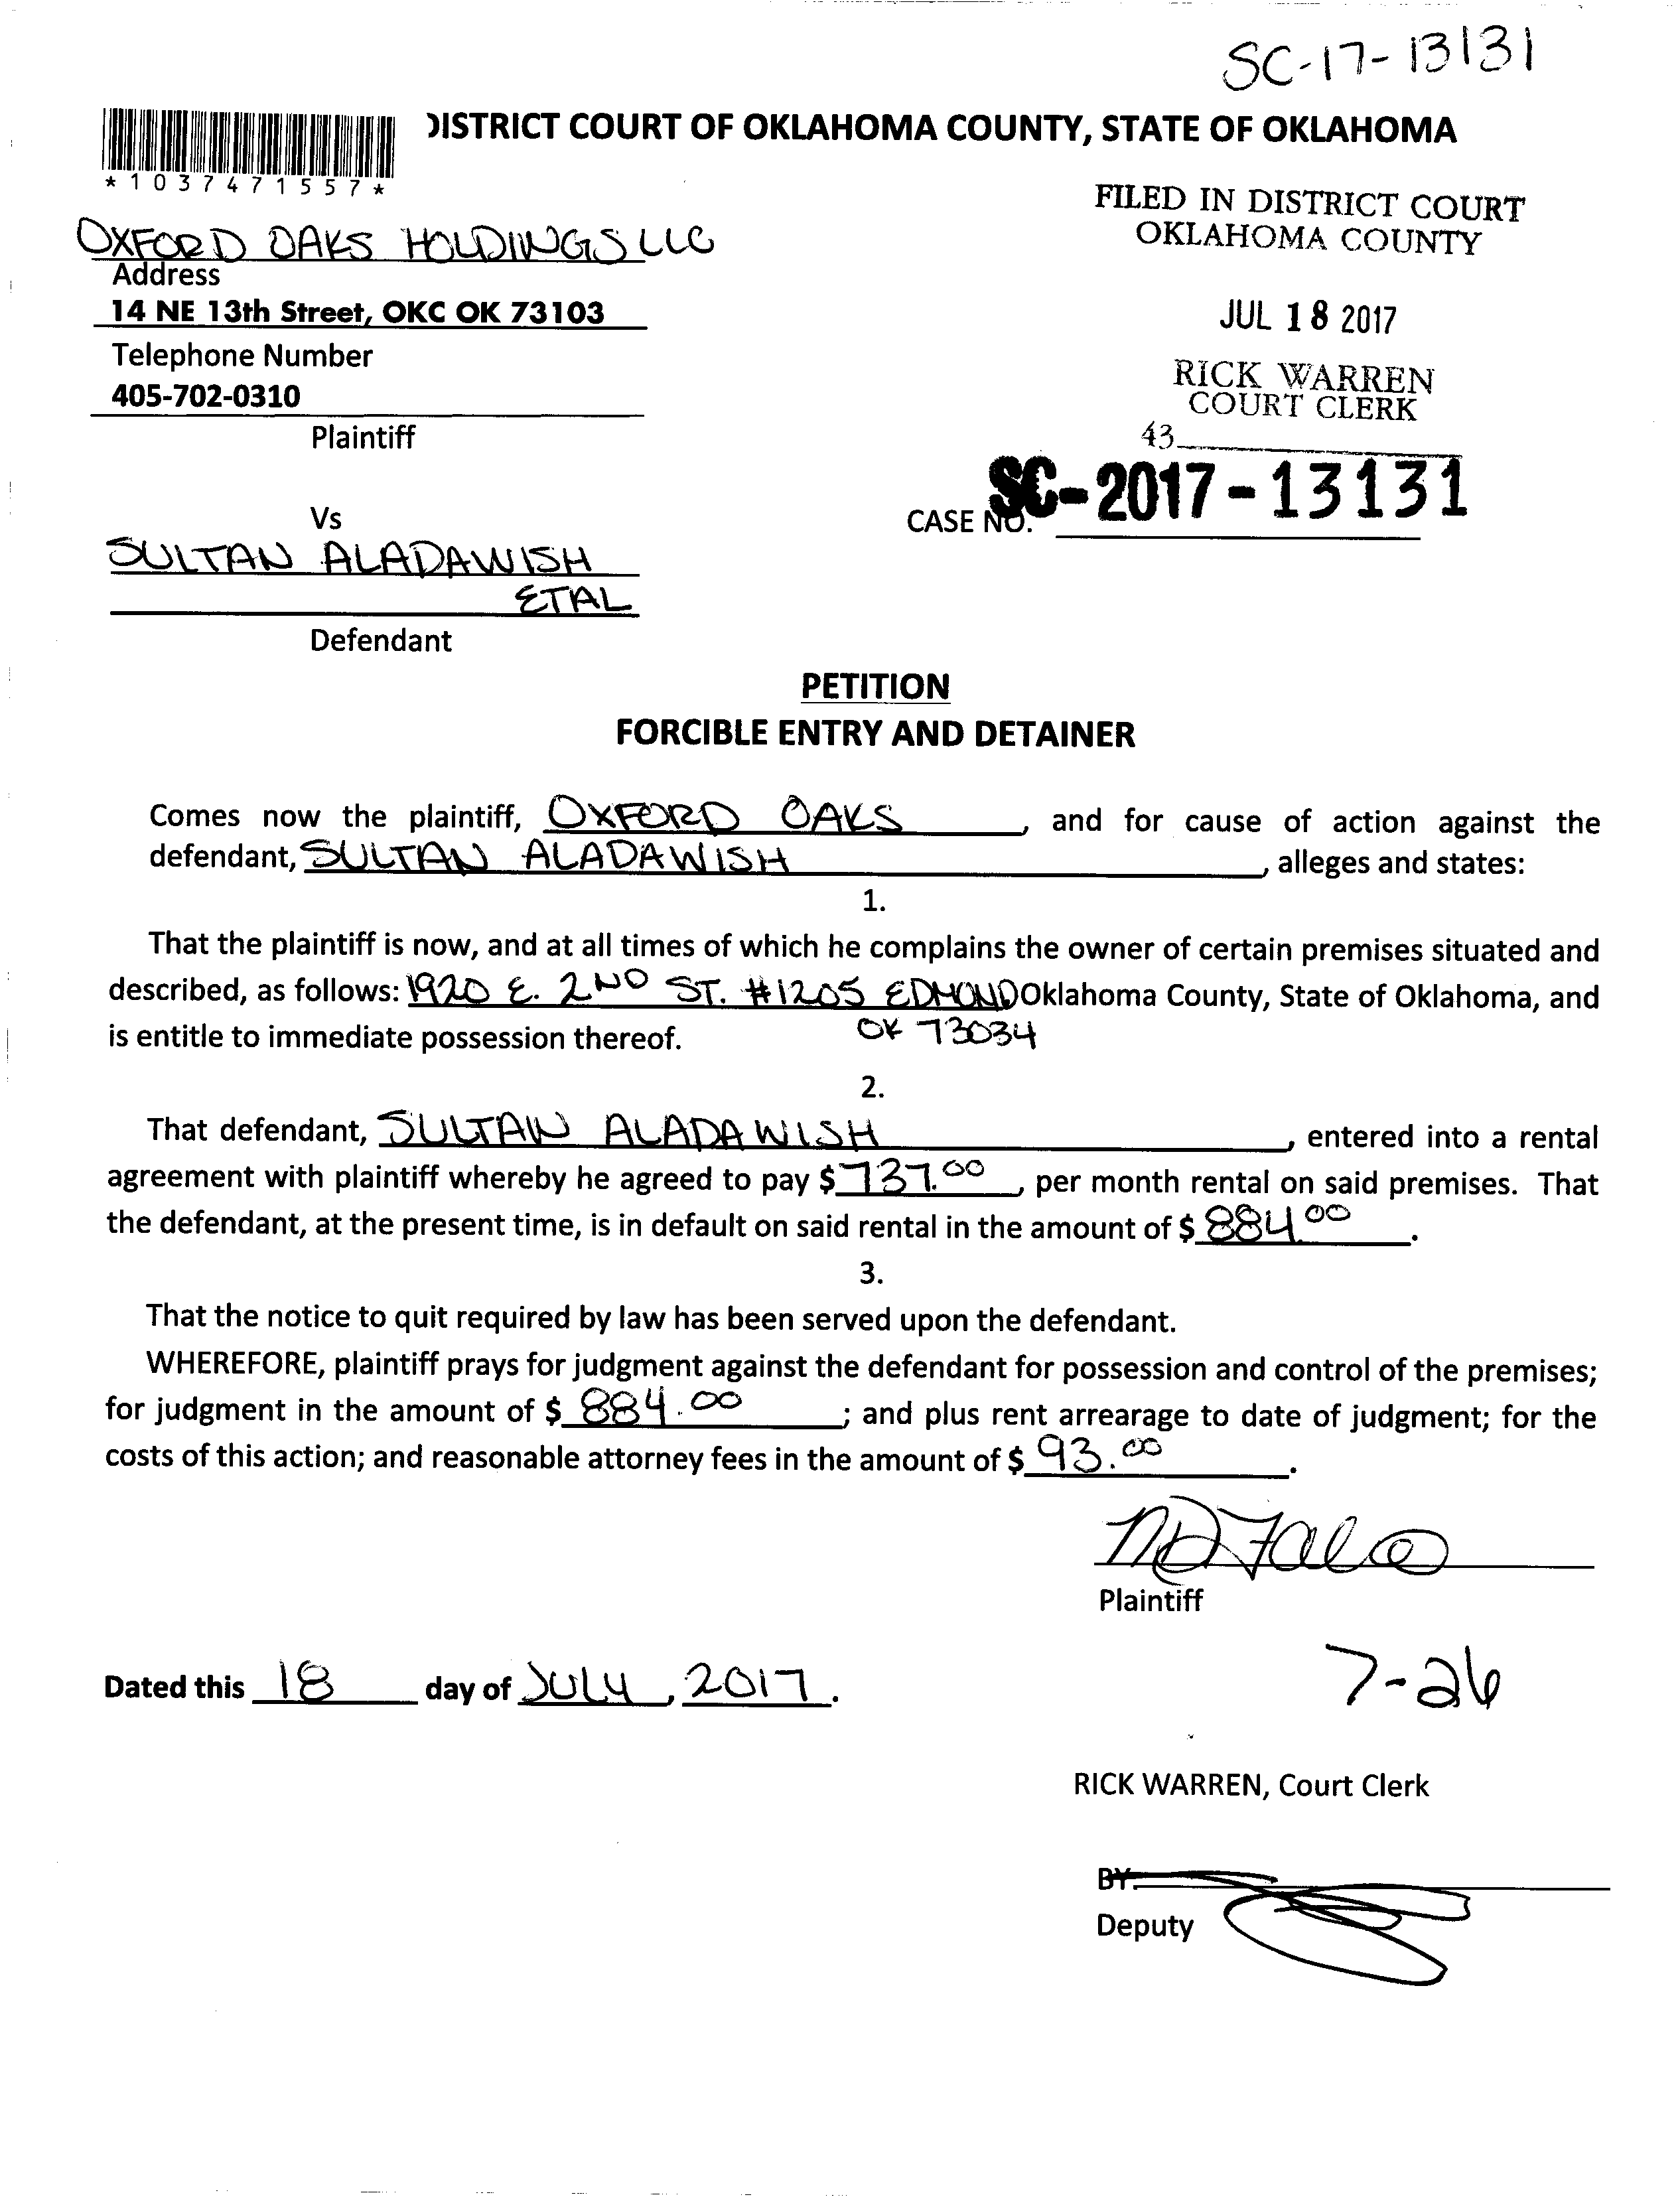 SC-17-13131
DISTRICT COURT OF OKLAHOMA COUNTY, STATE OF OKLAHOMA
*1037471557*
FILED IN DISTRICT COURT
OKLAHOMA COUNTY
OXFORD OAKS HOLDINGS LLC
Address
14 NE 13th Street, OKC OK 73103
JUL 18 2017
Telephone Number
405-702-0310
RICK WARREN
COURT CLERK
Plaintiff
43
SC-2017-13131
CASE NO.
Vs
SULTAN ALADAWISH
ETAL
Defendant
PETITION
FORCIBLE ENTRY AND DETAINER
Comes now the plaintiff, OXFORD OAKS, and for cause of action against the
defendant, SULTAN ALADAWISH, alleges and states:
1.
That the plaintiff is now, and at all times of which he complains the owner of certain premises situated and
described, as follows: 1920 E. 2ND ST. #1205 EDMOND Oklahoma County, State of Oklahoma, and
is entitle to immediate possession thereof. OK 73034
2.
That defendant, SULTAN ALADAWISH, entered into a rental
agreement with plaintiff whereby he agreed to pay $737.00, per month rental on said premises. That
the defendant, at the present time, is in default on said rental in the amount of $884.00.
3.
That the notice to quit required by law has been served upon the defendant.
WHEREFORE, plaintiff prays for judgment against the defendant for possession and control of the premises;
for judgment in the amount of $884.00; and plus rent arrearage to date of judgment; for the
costs of this action; and reasonable attorney fees in the amount of $93.00.
Plaintiff
Dated this 18 day of JULY, 2017.
7-26
RICK WARREN, Court Clerk
BY:
Deputy